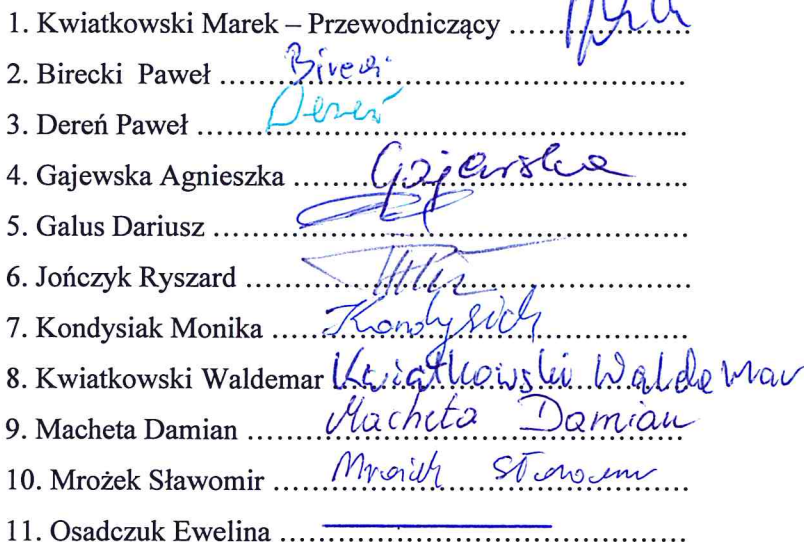 1. Kwiatkowski Marek – Przewodniczący ........................
2. Birecki Paweł ........ Birecki ........................
3. Dereń Paweł ........ Dereń ........................
4. Gajewska Agnieszka ........ Gajewska ........
5. Galus Dariusz ................................................
6. Jończyk Ryszard ................................................
7. Kondysiak Monika ..... Kondysiak ........................
8. Kwiatkowski Waldemar Kwiatkowski Waldemar
9. Macheta Damian ........ Macheta Damian
10. Mrożek Sławomir ........ Mrożek Sławomir
11. Osadczuk Ewelina ................................................